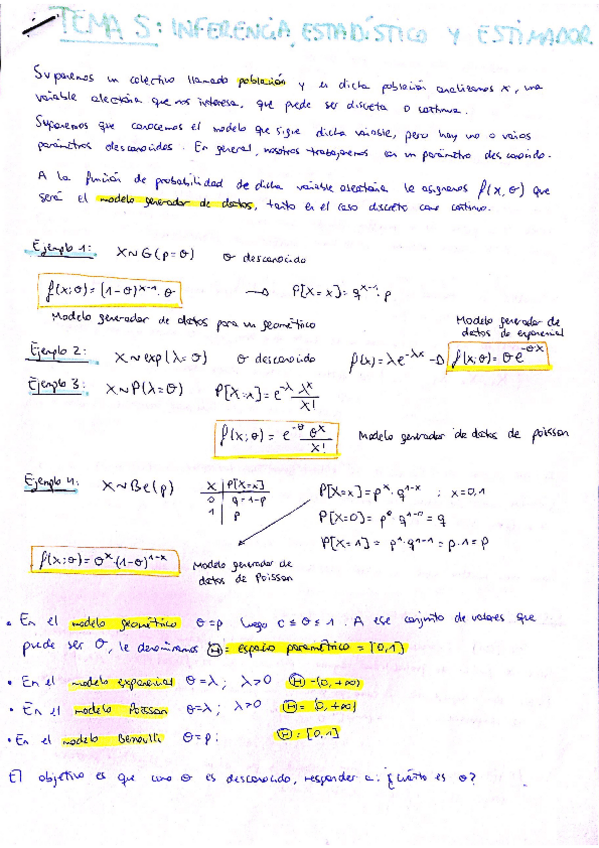 TEMA 5: INFERENCIA ESTADÍSTICO Y ESTIMADOR
Suponemos un colectivo llamado población y en dicha población analizamos x, una
variable aleatoria que nos interesa, que puede ser discreta o continua.
Suponemos que conocemos el modelo que sigue dicha variable, pero hay uno o varios
parámetros desconocidos. En general, nosotros trabajaremos en un parámetro desconocido.
A la función de probabilidad de dicha variable aleatoria le asignamos f(x,θ) que
será el modelo generador de datos, tanto en el caso discreto como continuo.
Ejemplo 1: X~G(p=θ) θ desconocido
f(x;θ)=(1-θ)^{x-1}·θ → P[X=x]=q^{x-1}·p
Modelo generador de datos para un geométrico
Modelo generador de
datos de exponencial
Ejemplo 2: X~exp(λ=θ) θ desconocido f(x)=λe^{-λx} → f(x;θ)=θe^{-θx}
Ejemplo 3: X~P(λ=θ) P[X=x]=e^{-λ} λ^x/x!
f(x;θ)=e^{-θ} θ^x/x! Modelo generador de datos de poisson
Ejemplo 4: X~Be(p) X P[X=x] P[X=x]=p^x·q^{1-x} ; x=0,1
0 q=1-p
1 p
P[X=0]=p^0·q^{1-0}=q
P[X=1]=p^1·q^{1-1}=p·1=p
f(x;θ)=θ^x·(1-θ)^{1-x} Modelo generador de
datos de Poisson
• En el modelo geométrico θ=p luego 0≤θ≤1. A ese conjunto de valores que
puede ser θ, le denominamos Θ= espacio paramétrico = [0,1]
• En el modelo exponencial θ=λ; λ>0 Θ=(0,+∞)
• En el modelo Poisson θ=λ; λ>0 Θ=(0,+∞)
• En el modelo Bernoulli θ=p: Θ=[0,1]
El objetivo es que como θ es desconocido, responder a: ¿Cuánto es θ?